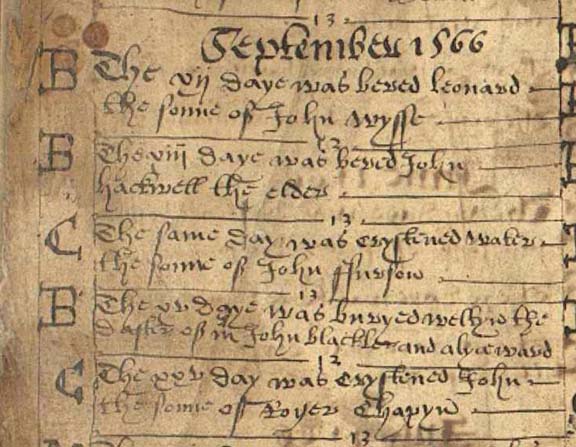 13
September 1566
B The xij daye was bered leonard
the sonne of John wysse
13
B The xiij daye was bered John
hackwell the elder
13
C The same day was crystened water
the sonne of John
13
B The xv daye was buryed the
of m John and ward
12
C The xxv day was crystened John
the sonne of Royer Chapyn
13